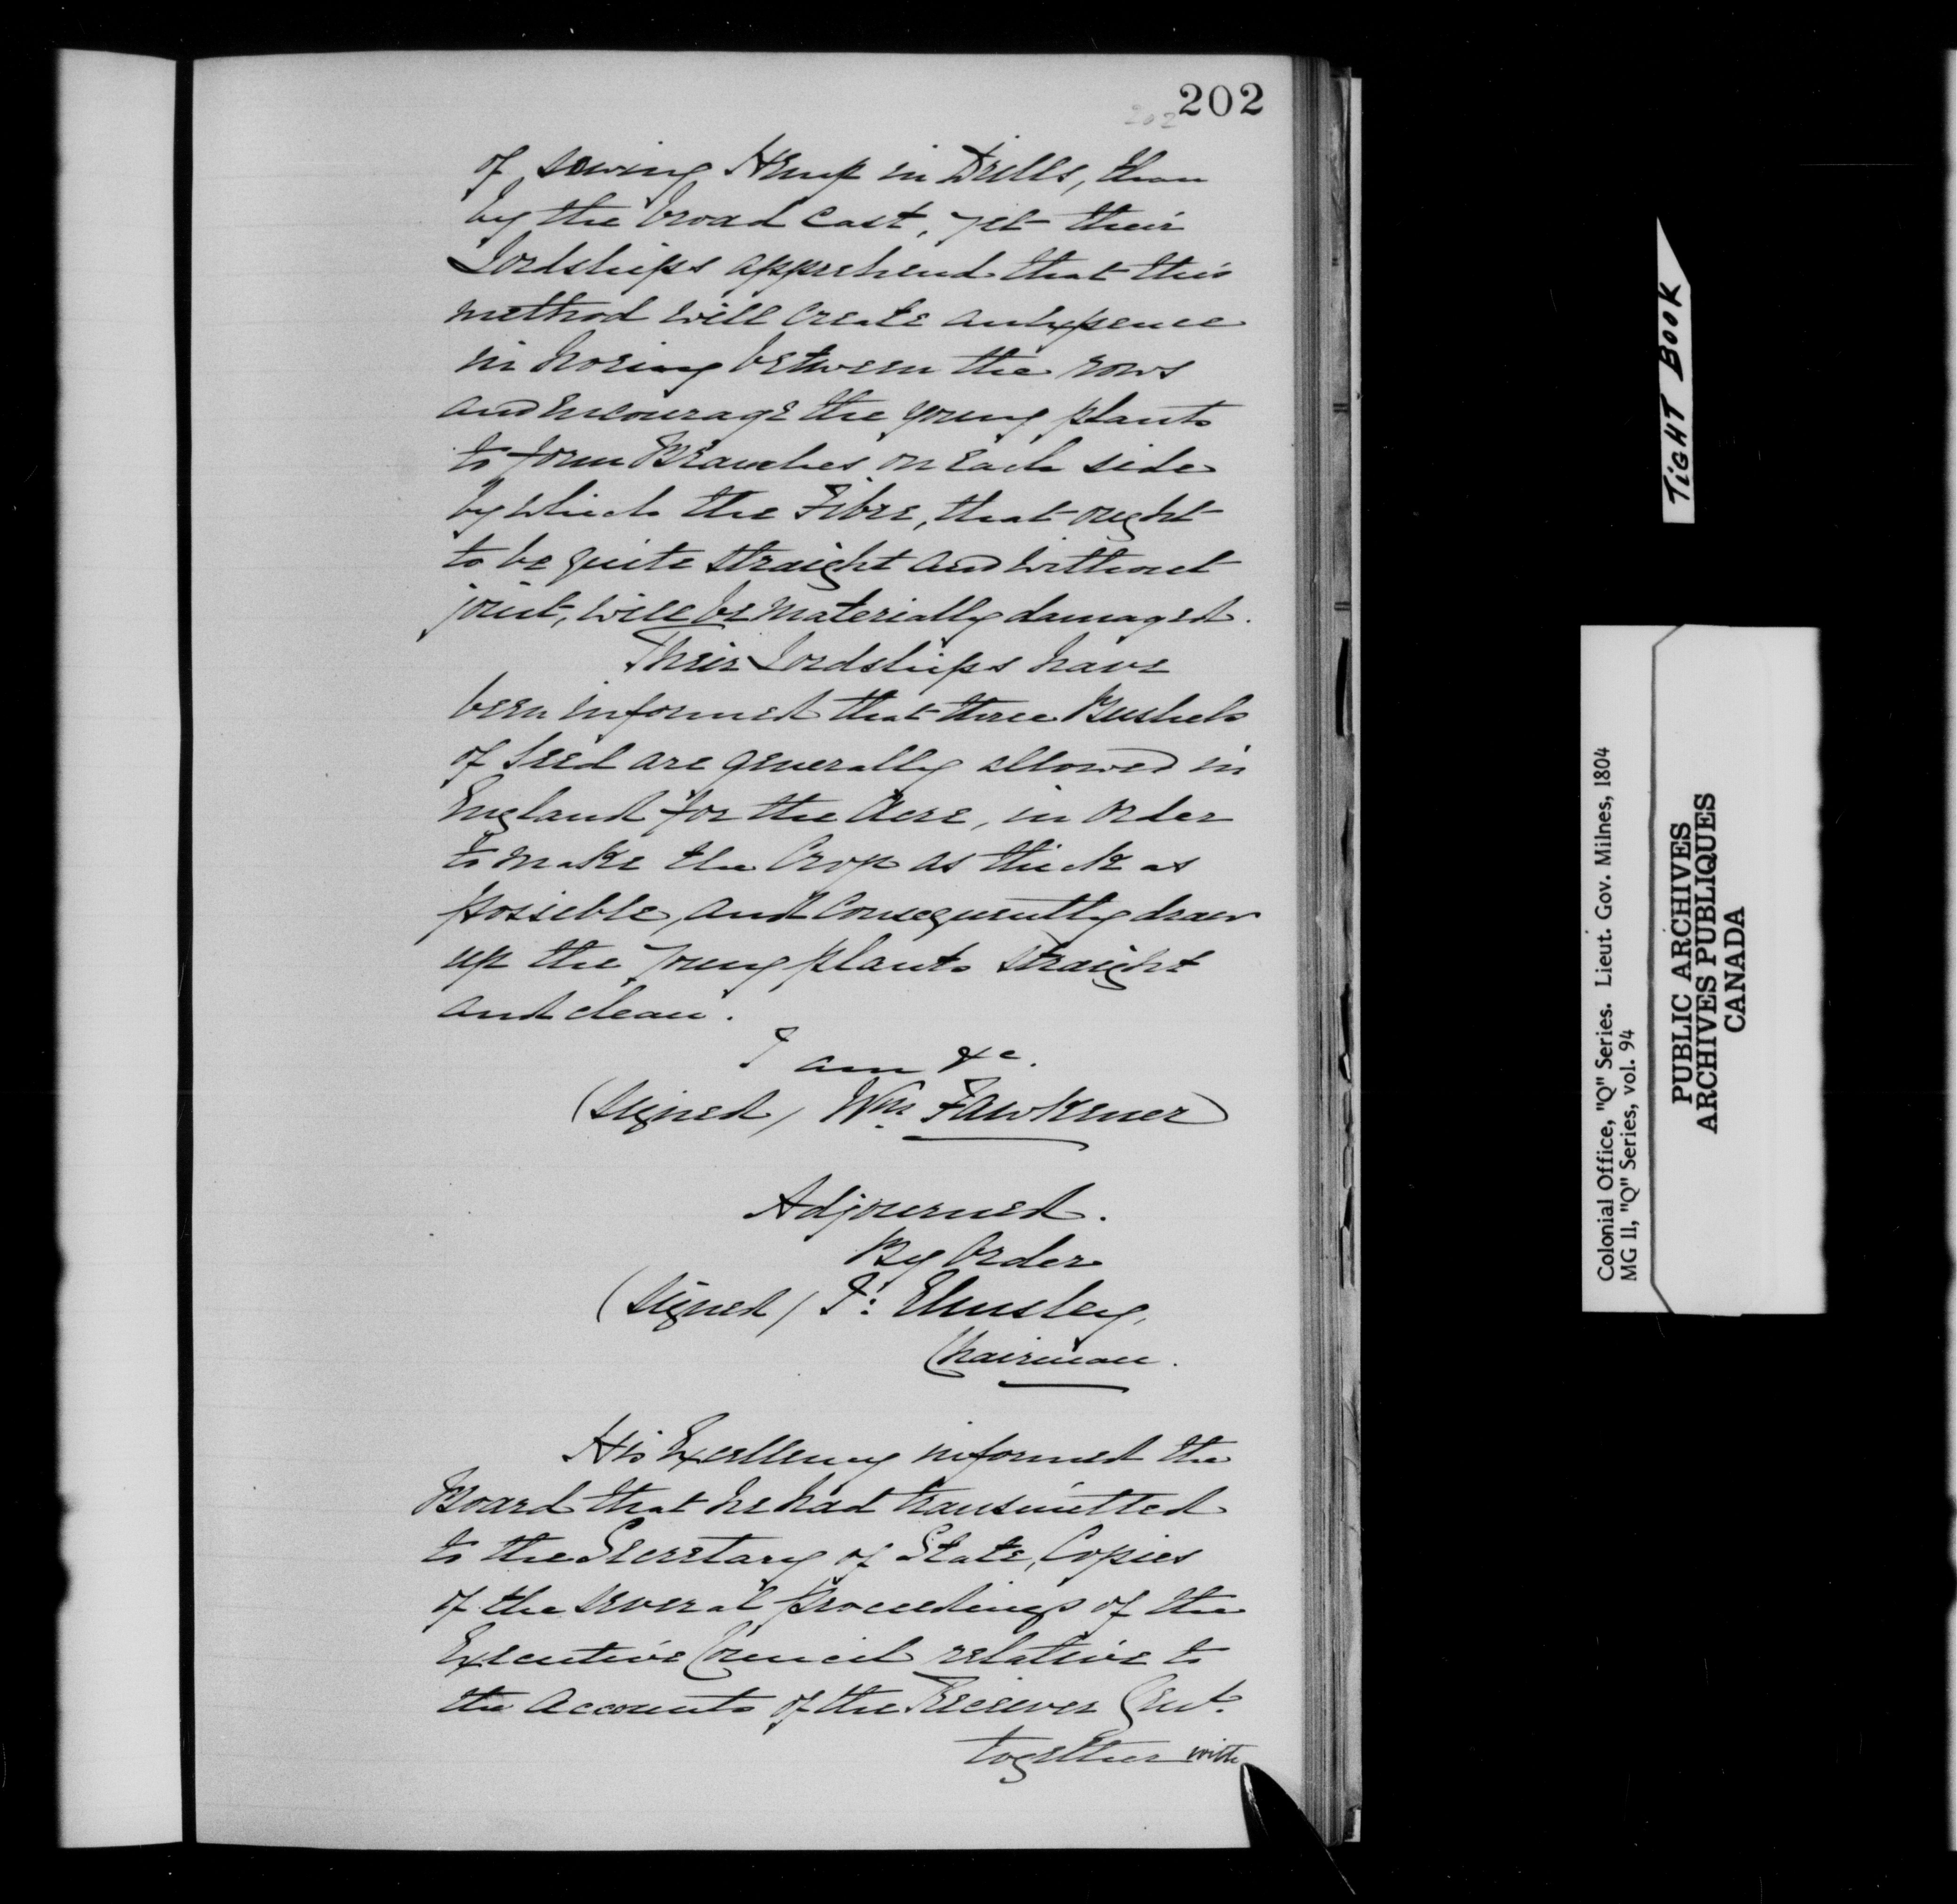 202
202
of sowing Hemp in Drills, than
by the broad cast, yet their
Lordships apprehend that this
method will create an expence
in hoeing between the rows
and encourage the young plants
to form Branches on each side
by which the Fibre, that ought
to be quite straight and without
joint, will be materially damaged.
Their Lordships have
been informed that three Bushels
of Seed are generally allowed in
England for the Acre, in order
to make the Crop as thick as
possible, and Consequently draw
up the young plants straight
and clean.
I am &c.
(Signed) Wm. Fawkener
Adjourned.
By Order
(Signed) J: Elmsley,
Chairman.
His Excellency informed the
Board that he had transmitted
to the Secretary of State, Copies
of the several proceedings of the
Executive Council relative to
the Accounts of the Receiver Genl.
together with
TIGHT BOOK
Colonial Office, "Q" Series. Lieut. Gov. Milnes, 1804
MG 11, "Q" Series, vol. 94
PUBLIC ARCHIVES
ARCHIVES PUBLIQUES
CANADA